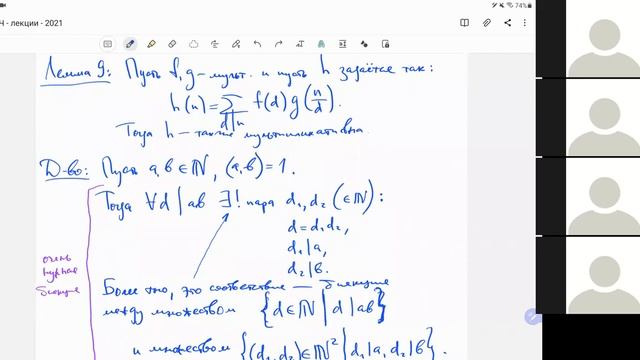 Ч - лекции - 2021
74%
Лемма 9: Пусть f, g – мульт. и пусть h задаётся так:
h(n) = ∑ f(d) g(n/d).
d|n
Тогда h – также мультипликативна.
Д-во: Пусть a, b ∈ ℕ, (a, b) = 1.
Тогда ∀d | ab ∃! пара d₁, d₂ (∈ ℕ):
d = d₁d₂,
d₁ | a,
d₂ | b.
очень
нужная
биекция
Более того, это соответствие – биекция
между множеством {d ∈ ℕ | d | ab}
и множеством {(d₁, d₂) ∈ ℕ² | d₁ | a, d₂ | b}.